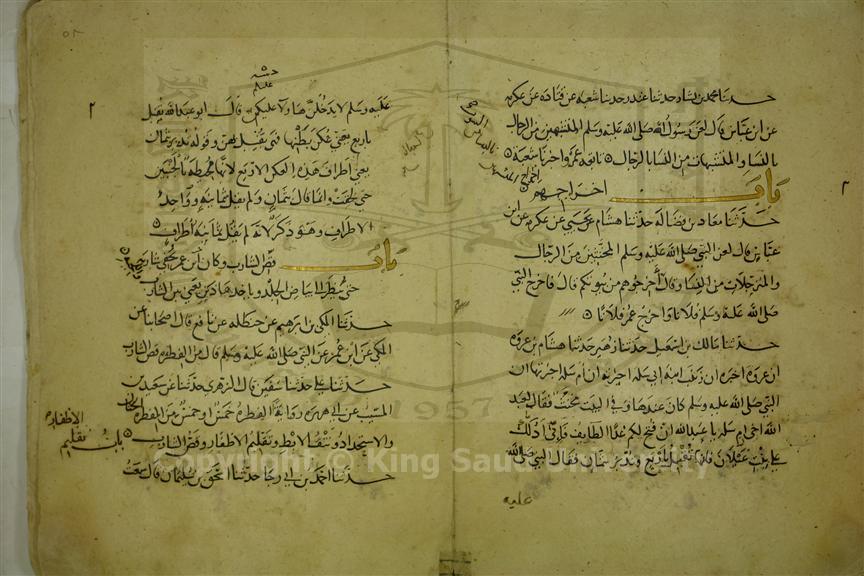 حدثنا محمد بن بشار حدثنا غندر حدثنا شعبه عن قتاده عن عكرمه
عن ابن عباس قال لعن رسول الله صلى الله عليه وسلم المتشبهين من الرجال
بالنسا والمتشبهات من النسا بالرجال تابعه عمرو اخبرنا شعبة
باب اخراجهم
حدثنا معاذ بن فضالة حدثنا هشام عن يحيى عن عكرمه عن ابن
عباس قال لعن النبي صلى الله عليه وسلم المخنثين من الرجال
والمترجلات من النسا وقال أخرجوهم من بيوتكم قال فاخرج النبي
صلى الله عليه وسلم فلانا واخرج عمر فلانا
حدثنا مالك بن اسمعيل حدثنا زهير حدثنا هشام بن عروه
ان عروه اخبره ان زينب ابنه ابي سلمه اخبرته ان أم سلمه اخبرتها ان
النبي صلى الله عليه وسلم كان عندها وفي البيت مخنث فقال لعبد
الله اخي ام سلمه يا عبد الله ان فتح لكم غدا الطايف فاني أدلك
على بنت غيلان فانها تقبل باربع وتدبر بثمان فقال النبي صلى الله
عليه
عليه وسلم لا يدخلن هاولا عليكم قال ابو عبد الله تقبل
باربع يعني عكن بطنها فهي تقبل بهن وقوله تدبر بثمان
يعني أطراف هذه العكن الاربع لانها محيطة بالجنبين
حتى لحقت وانما قال بثمان ولم يقل ثمانيه وواحد
الاطراف وهو ذكر لانه لم يقل ثمانيه أطراف
باب قص الشارب وكان ابن عمر يحفي شاربه
حتى ينظر الى بياض الجلد وياخذ هاذين يعني بين الشارب
حدثنا المكي بن ابرهيم عن حنظله عن نافع قال اصحابنا عن
المكي عن ابن عمر عن النبي صلى الله عليه وسلم قال من الفطره قص الشارب
حدثنا علي حدثنا سفين قال الزهري حدثنا عن سعيد بن
المسيب عن ابي هريره روايه الفطره خمس او خمس من الفطره الختان
والاستحداد ونتف الابط وتقليم الاظفار وقص الشارب
باب تقليم
الاظفار
حدثنا احمد بن ابي رجا حدثنا اسحق بن سليمان قال سمعت
1957
Copyright © King Saud University